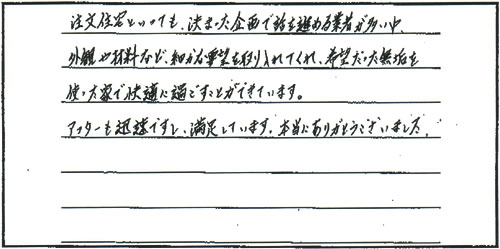 注文住宅といっても、決まった企画で話を進める業者が多い中、
外観や材料など、細かな要望を取り入れてくれ、希望だった無垢を
使った家で快適に過ごすことができています。
アフターも迅速ですし、満足しています。本当にありがとうございました。